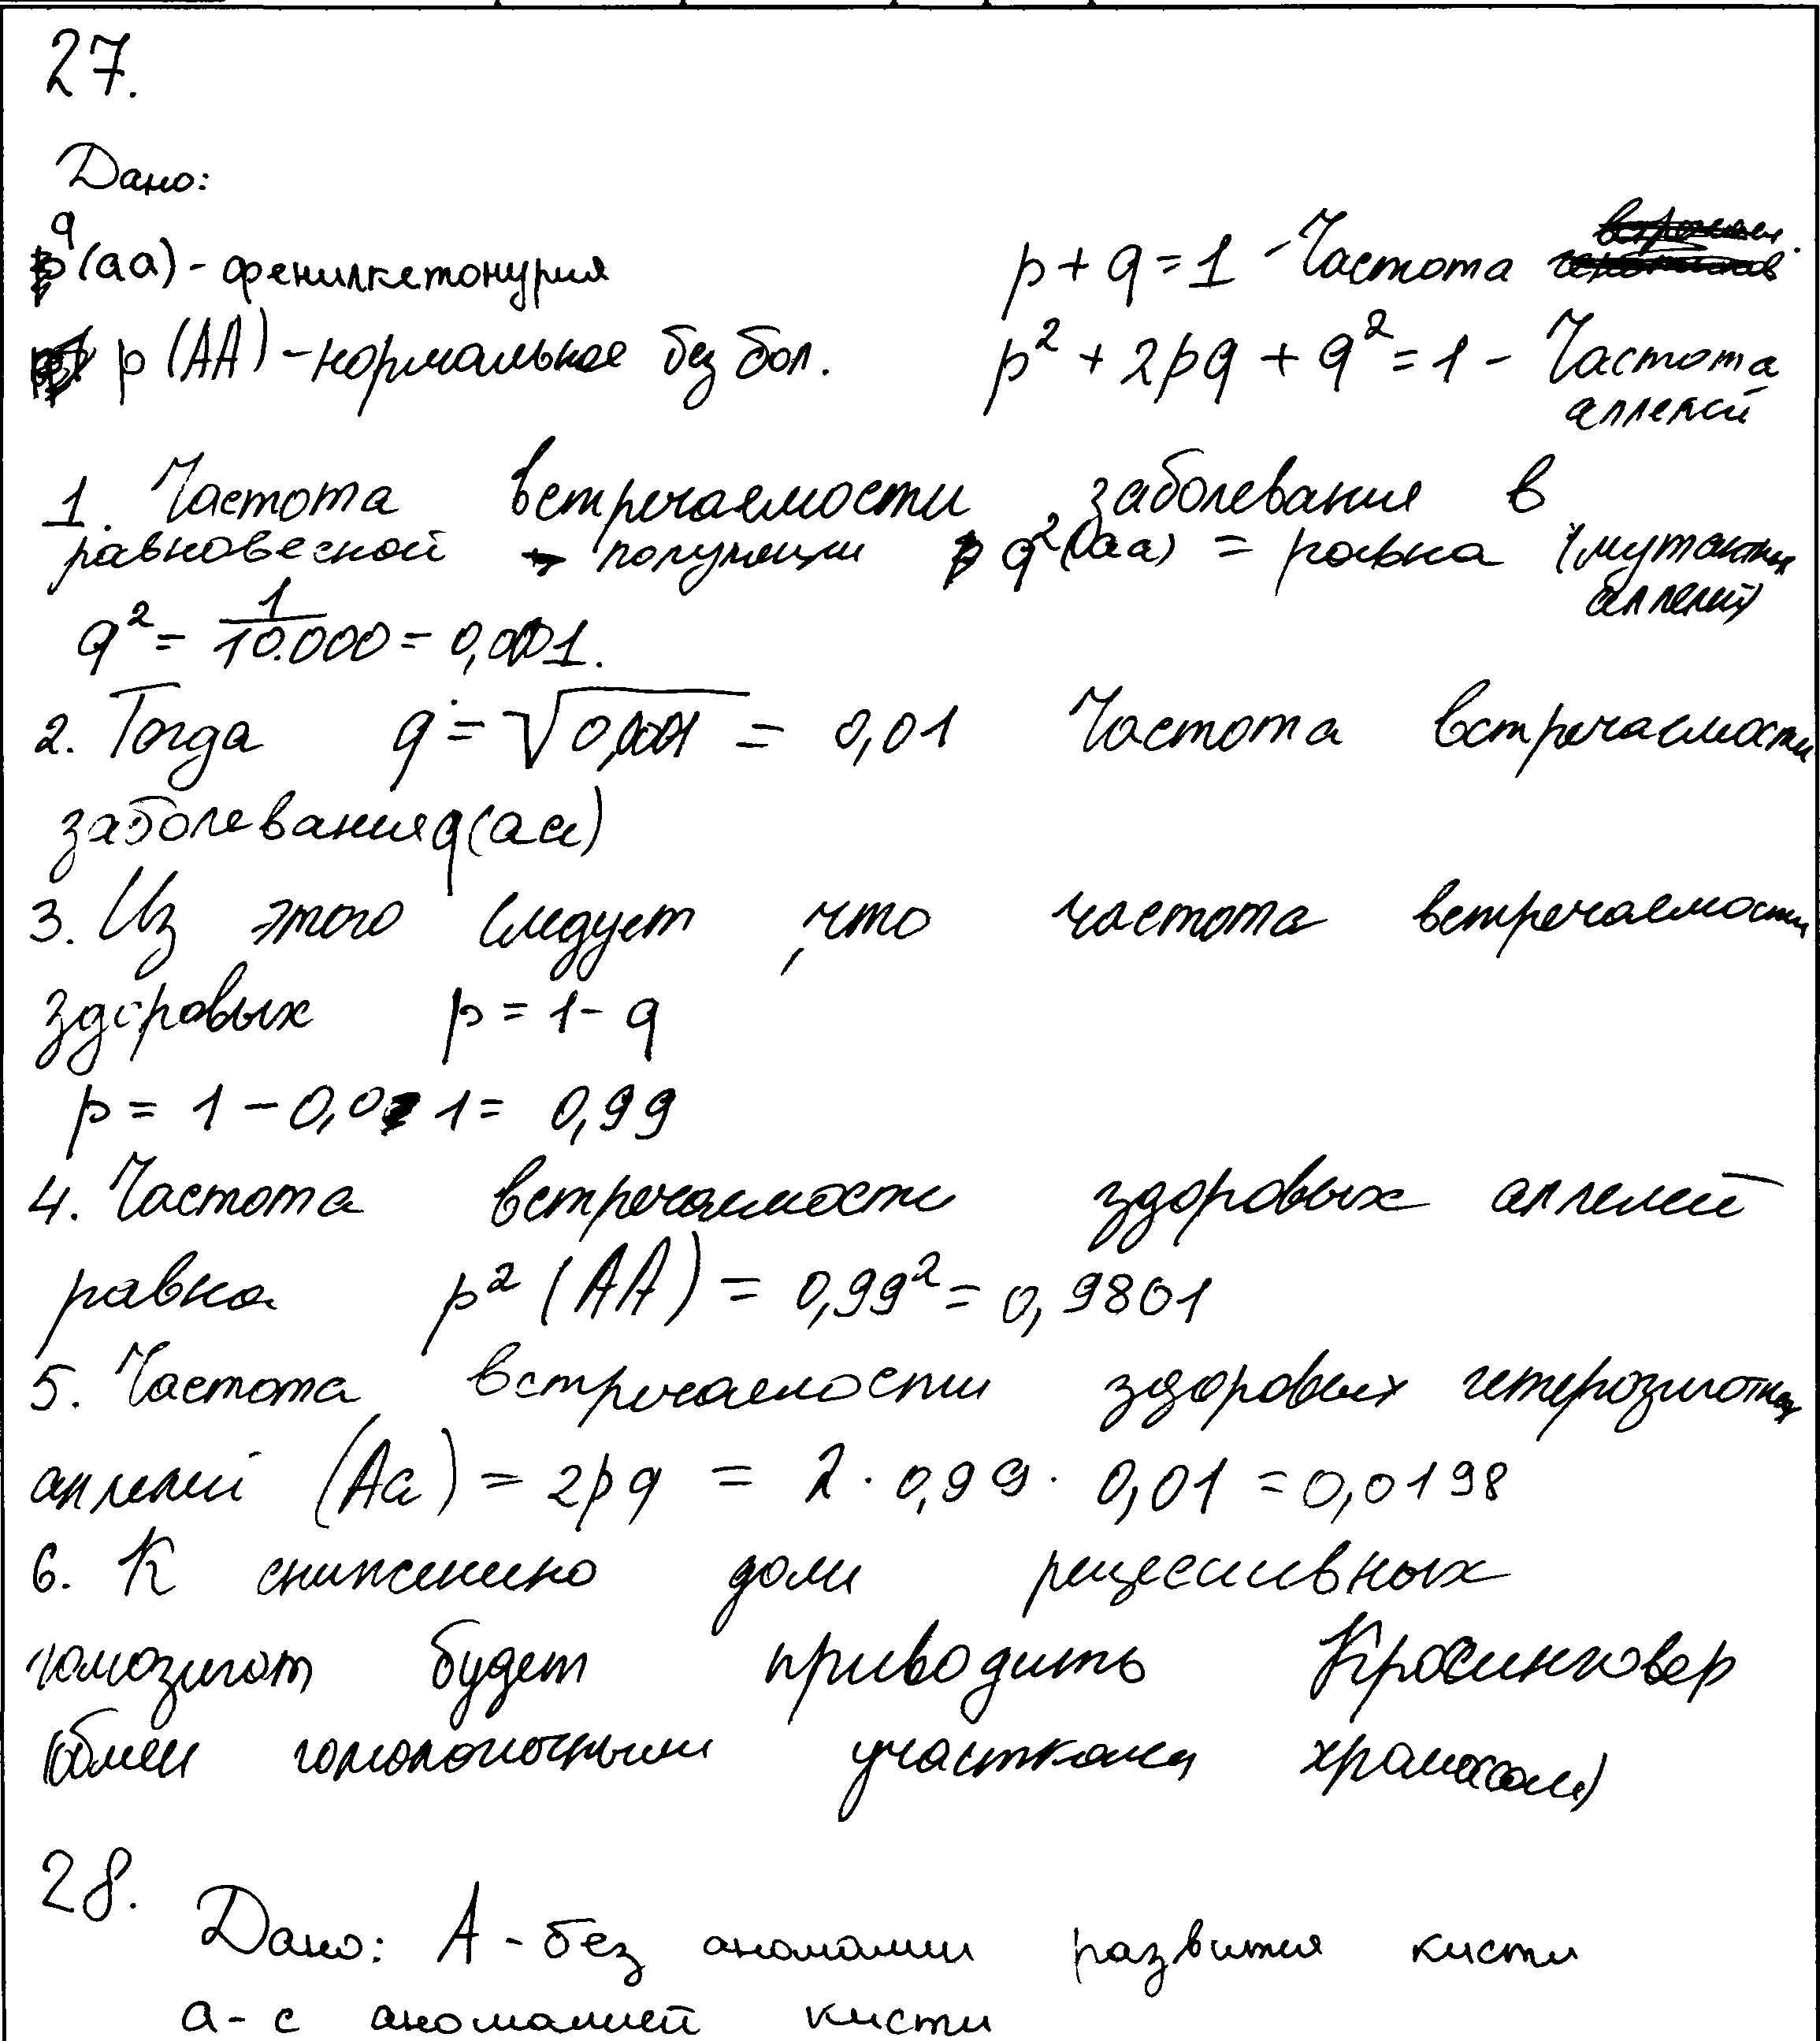 27.
Дано:
q
(aa) - фенилкетонурия
p + q = 1 - Частота
p (AA) - нормальное без бол.
p² + 2pq + q² = 1 - Частота
аллелей
1. Частота встречаемости заболевания в
равновесной популяции q²(aa) = равна (мутантных
аллелей)
q² = 1/10.000 = 0,0001.
2. Тогда q = √0,0001 = 0,01 Частота встречаемости
заболевания q(aa)
3. Из этого следует, что частота встречаемости
здоровых p = 1 - q
p = 1 - 0,01 = 0,99
4. Частота встречаемости здоровых аллелей
равна p² (AA) = 0,99² = 0,9801
5. Частота встречаемости здоровых гетерозиготных
аллелей (Aa) = 2pq = 2 · 0,99 · 0,01 = 0,0198
6. К снижению доли рецессивных
гомозигот будет приводить Кросинговер
(обмен гомологичными участками храмосом)
28.
Дано: А - без аномалии развития кисти
а - с аномалией кисти